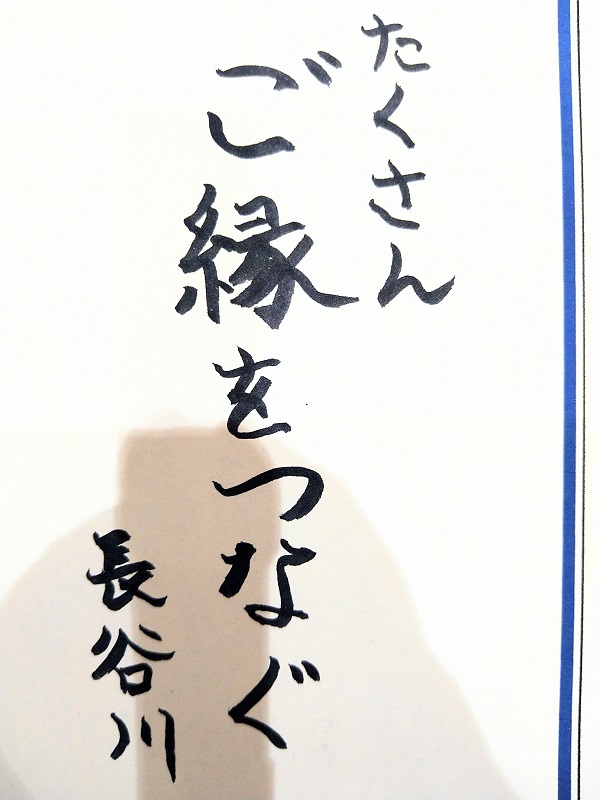 たくさん
ご縁をつなぐ
長谷川